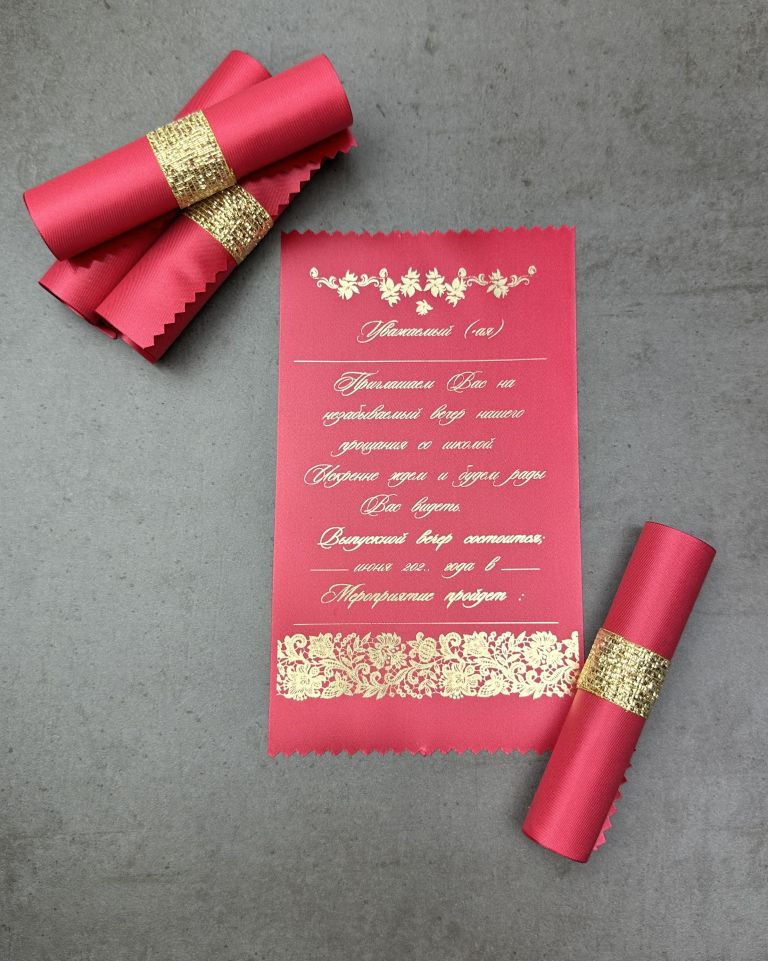 Уважаемый (-ая)
Приглашаем Вас на
незабываемый вечер нашего
прощания со школой.
Искренне ждем и будем рады
Вас видеть.
Выпускной вечер состоится;
____ июня 202.. года в ____
Мероприятие пройдет :